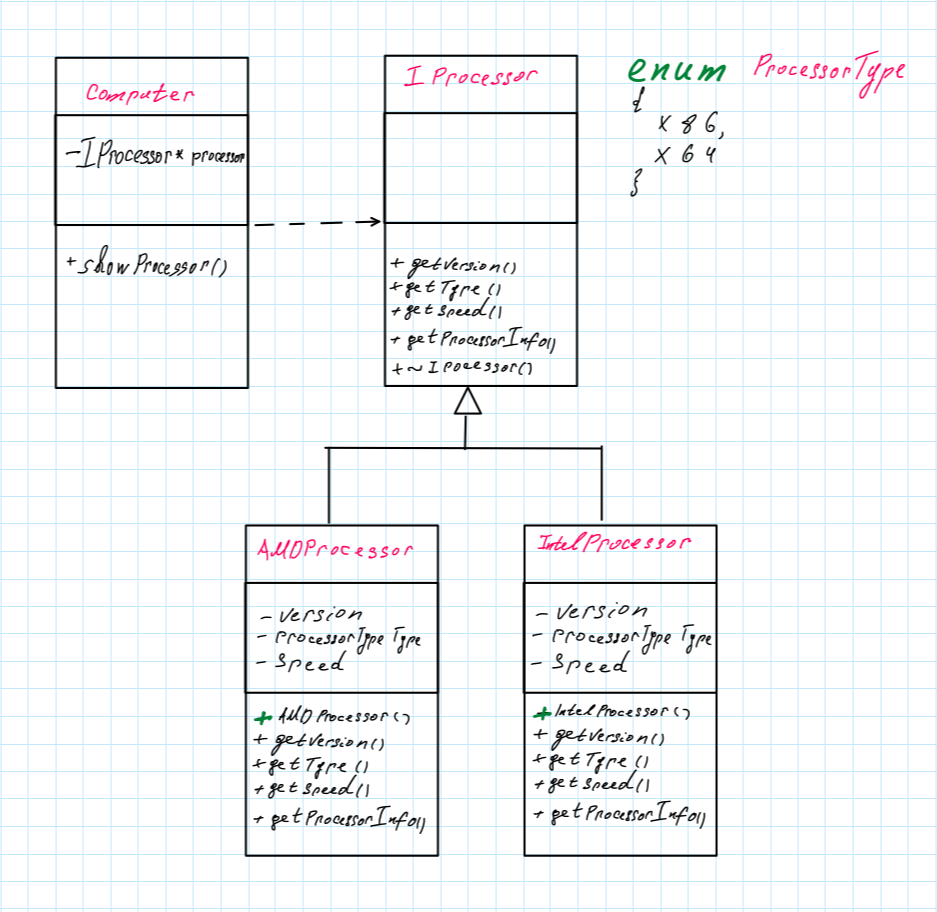 Computer
-IProcessor* processor
+showProcessor()
IProcessor
+getVersion()
+getType()
+getSpeed()
+getProcessorInfo()
+~IPocessor()
enum ProcessorType
{
x86,
x64
}
AMDProcessor
-version
-ProcessorType Type
-Speed
+AMDProcessor()
+getVersion()
+getType()
+getSpeed()
+getProcessorInfo()
IntelProcessor
-version
-ProcessorType Type
-Speed
+IntelProcessor()
+getVersion()
+getType()
+getSpeed()
+getProcessorInfo()